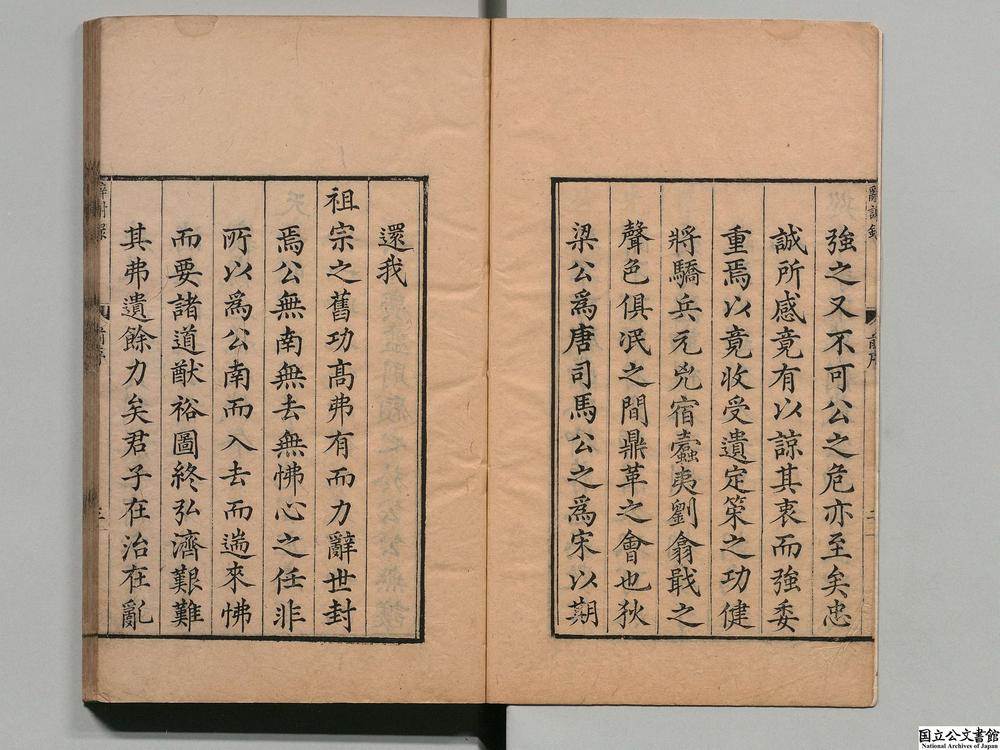 強之又不可公之危亦至矣忠
誠所感竟有以諒其衷而強委
重焉以竟收受遺定策之功健
將驕兵元兇宿蠹夷劉翕戢之
聲色俱冺之間鼎革之會也狄
梁公爲唐司馬公之爲宋以期
還我
祖宗之舊功髙弗有而力辭世封
焉公無南無去無怫心之任非
所以爲公南而入去而遄來怫
而要諸道猷裕圖終弘濟艱難
其弗遺餘力矣君子在治在亂
辭封錄
前序
二
三
国立公文書館
National Archives of Japan